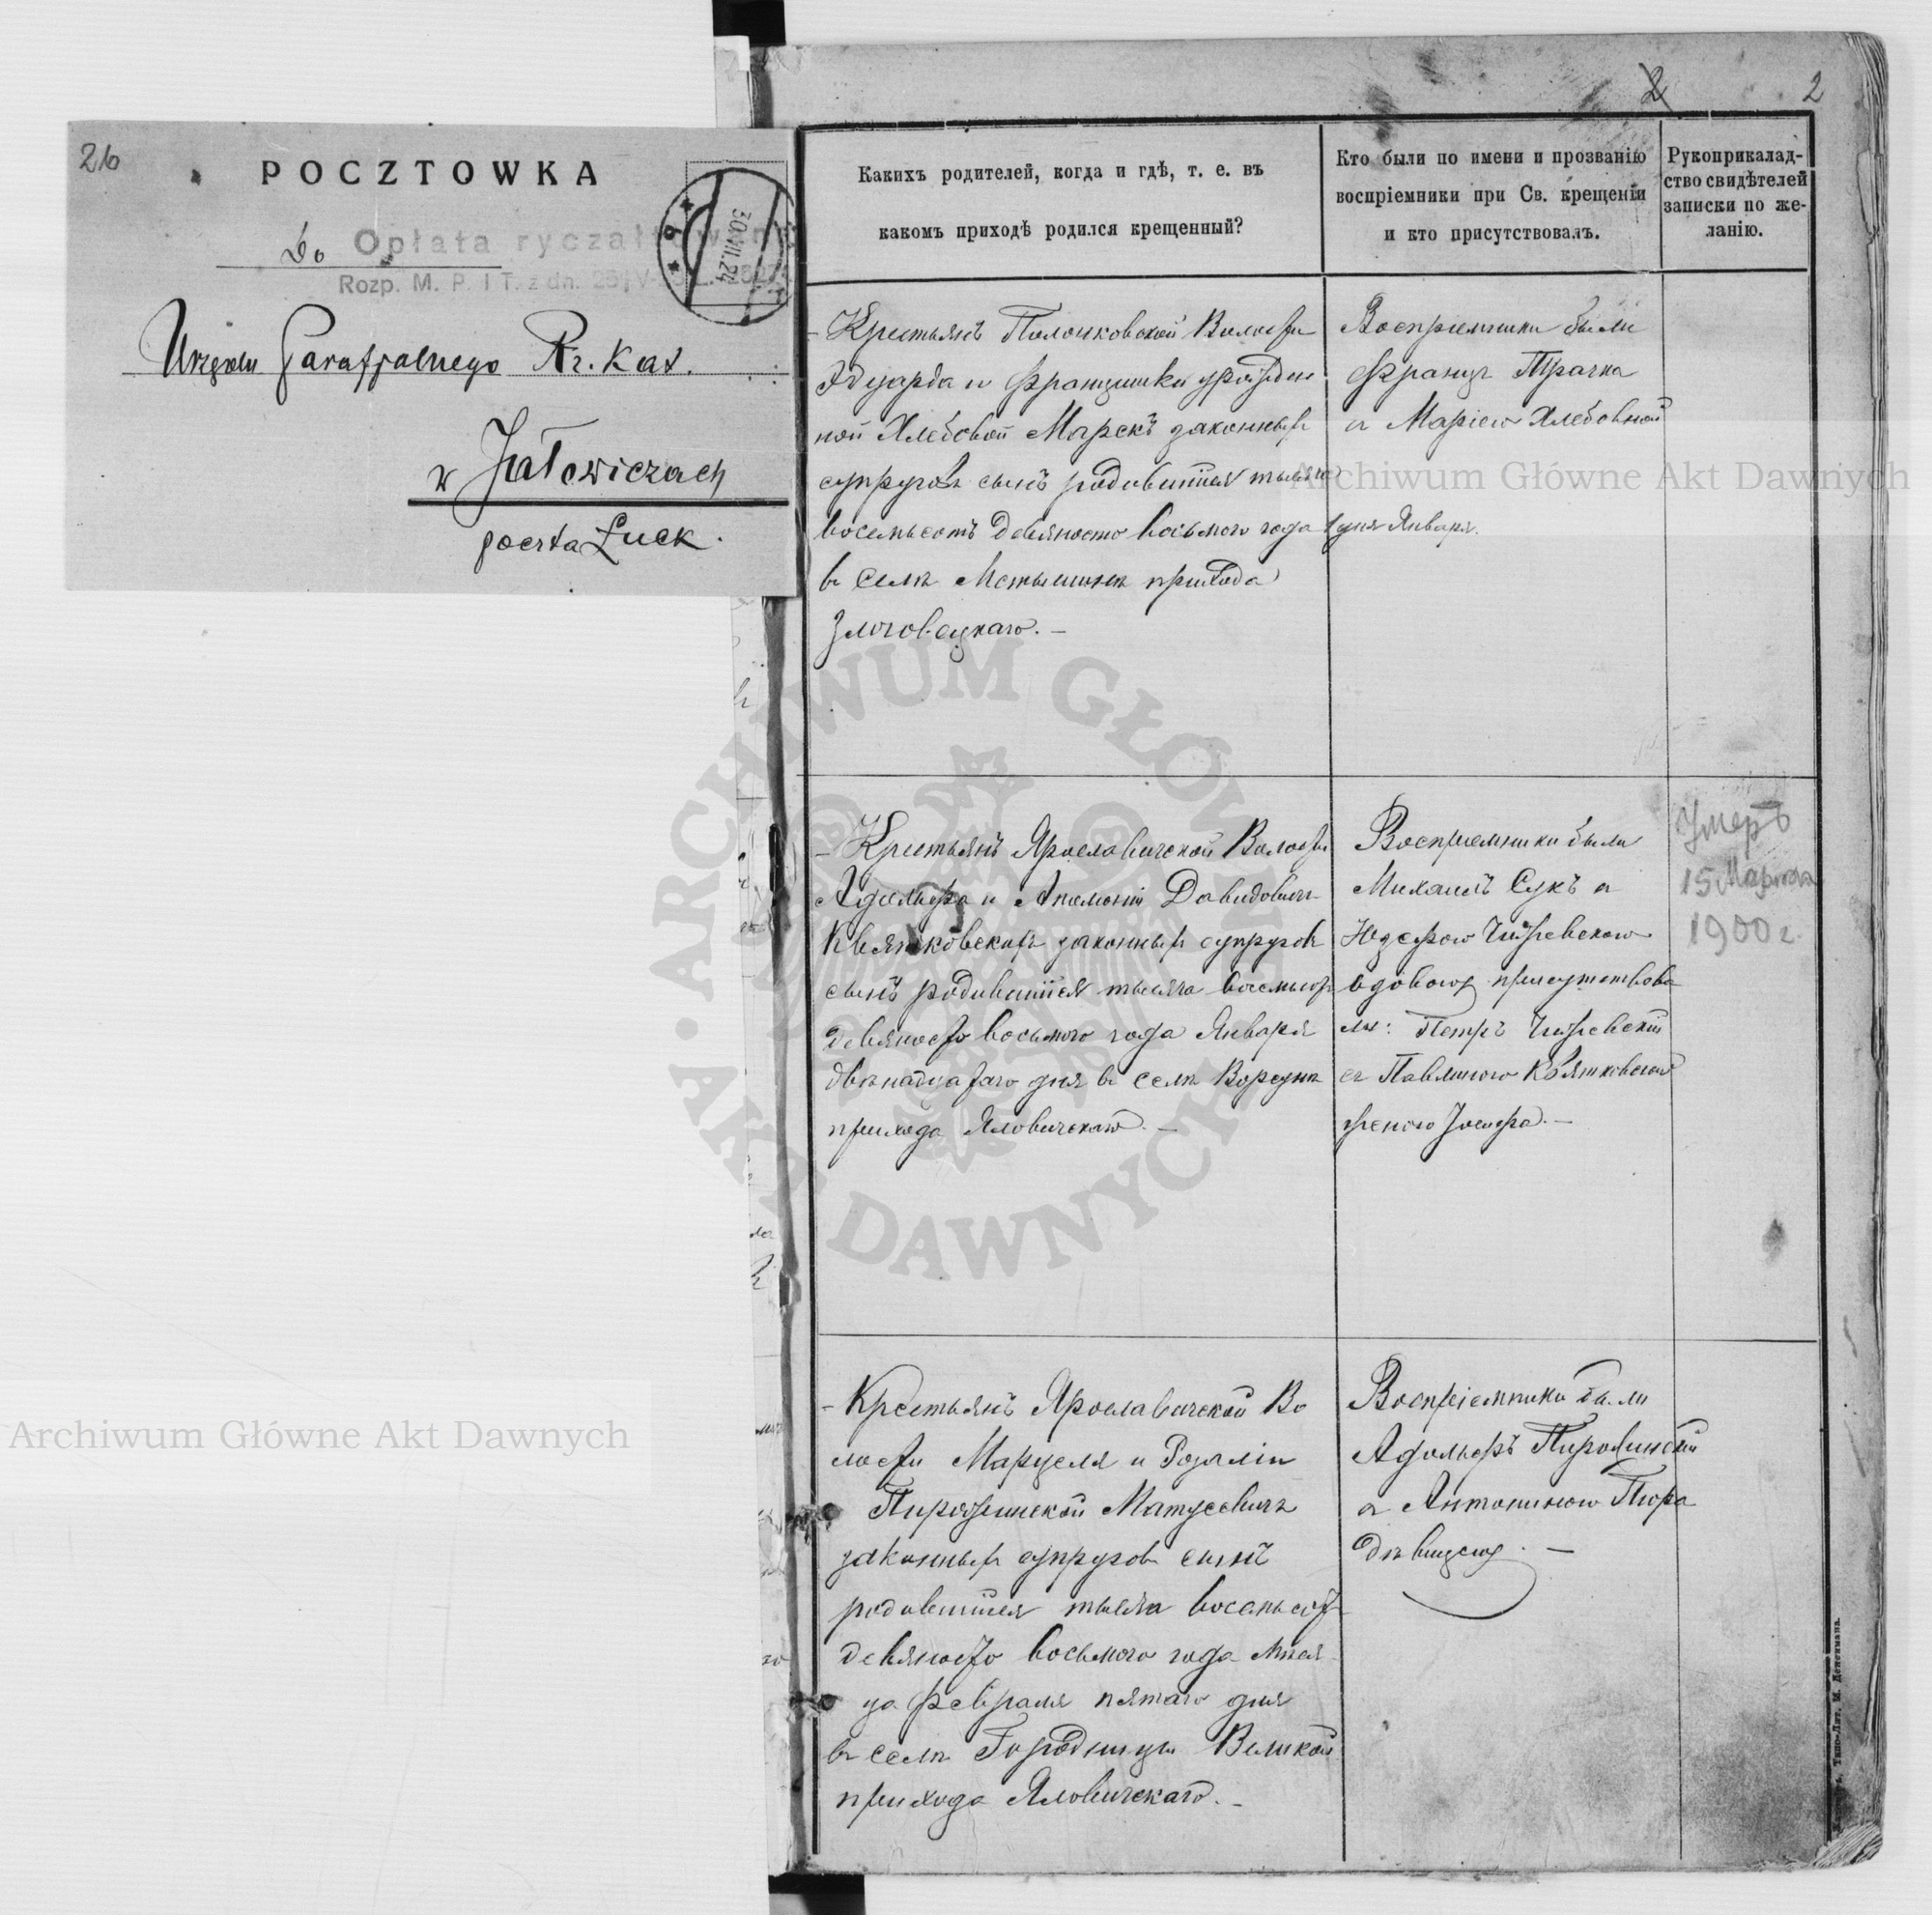 26
POCZTOWKA
Do
Opłata ryczałtowana
Rozp. M. P. I T. z dn.
30.VII.24
Urzędu Parafjalnego Rz. Kat.
w Jałowiczach
poczta Łuck.
2
2
Какихъ родителей, когда и гдѣ, т. е. въ
какомъ приходѣ родился крещенный?
Кто были по имени и прозванію
воспріемники при Св. крещеніи
и кто присутствовалъ.
Рукоприкалад-
ство свидѣтелей
записки по же-
ланію.
Крестьянъ Полонковской Волости
Эдуарда и Францишки
ной Хлебовой Марекъ законныхъ
супруговъ сынъ родившійся тысяча
восемьсотъ девяносто восьмого года 1 дня Января.
въ селѣ прихода
Воспріемники были
Францъ Трачка
съ Маріею Хлебовной
Крестьянъ Ярославичской Волости
Адольфа и Аполоніи Давидовичъ
Квятковскихъ законныхъ супруговъ
сынъ родившійся тысяча восемьсотъ
девяносто восьмого года Января
двѣнадцатаго дня въ селѣ
прихода Яловичскаго. —
Воспріемники были
Михаилъ Сукъ съ
Юзефою
вдовою, присутствова
ли: Петръ
съ Павлиною Квятковскою
женою Іосифа. —
Умеръ
15 Марта
1900 г.
Крестьянъ Ярославичской Во
лости Марцеля и Розаліи
Матусевичъ
законныхъ супруговъ сынъ
родившійся тысяча восемьсотъ
девяносто восьмого года мѣся
ца февраля пятаго дня
въ селѣ Городницы Великой
прихода Яловичскаго. —
Воспріемники были
Адольфъ
съ Антониною
дѣвицею. —
Archiwum Główne Akt Dawnych
Archiwum Główne Akt Dawnych
ARCHIWUM GŁÓWNE AKT DAWNYCH